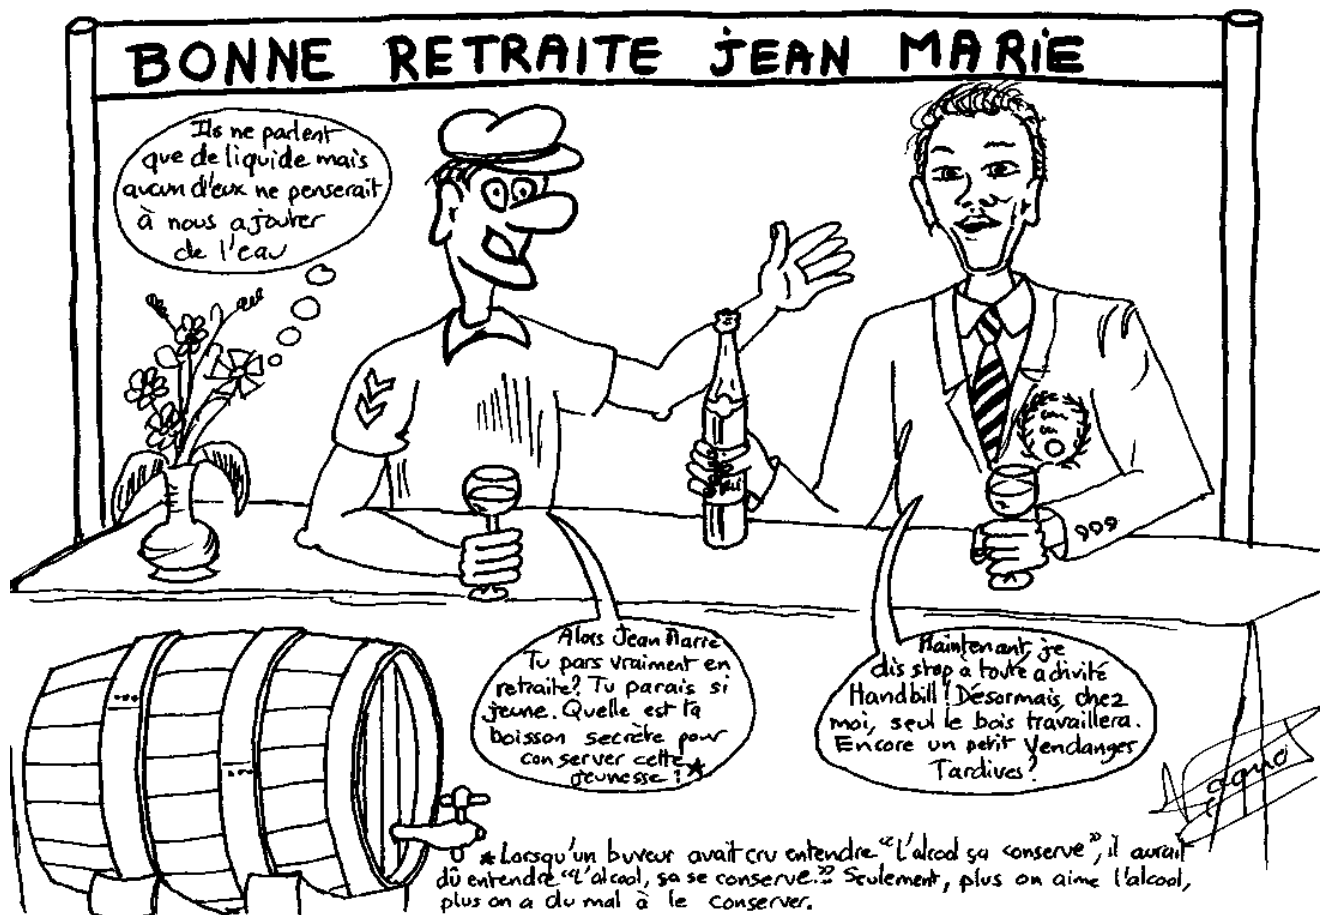 BONNE RETRAITE JEAN MARIE
Ils ne parlent
que de liquide mais
aucun d'eux ne penserait
à nous ajouter
de l'eau
Alors Jean Marie
Tu pars vraiment en
retraite? Tu parais si
jeune. Quelle est ta
boisson secrète pour
conserver cette
jeunesse? ★
Maintenant, je
dis stop à toute activité
Handbill! Désormais, chez
moi, seul le bois travaillera.
Encore un petit Vendanges
Tardives?
★ Lorsqu'un buveur avait cru entendre "L'alcool ça conserve", il aurait
dû entendre "L'alcool, ça se conserve." Seulement, plus on aime l'alcool,
plus on a du mal à le conserver.